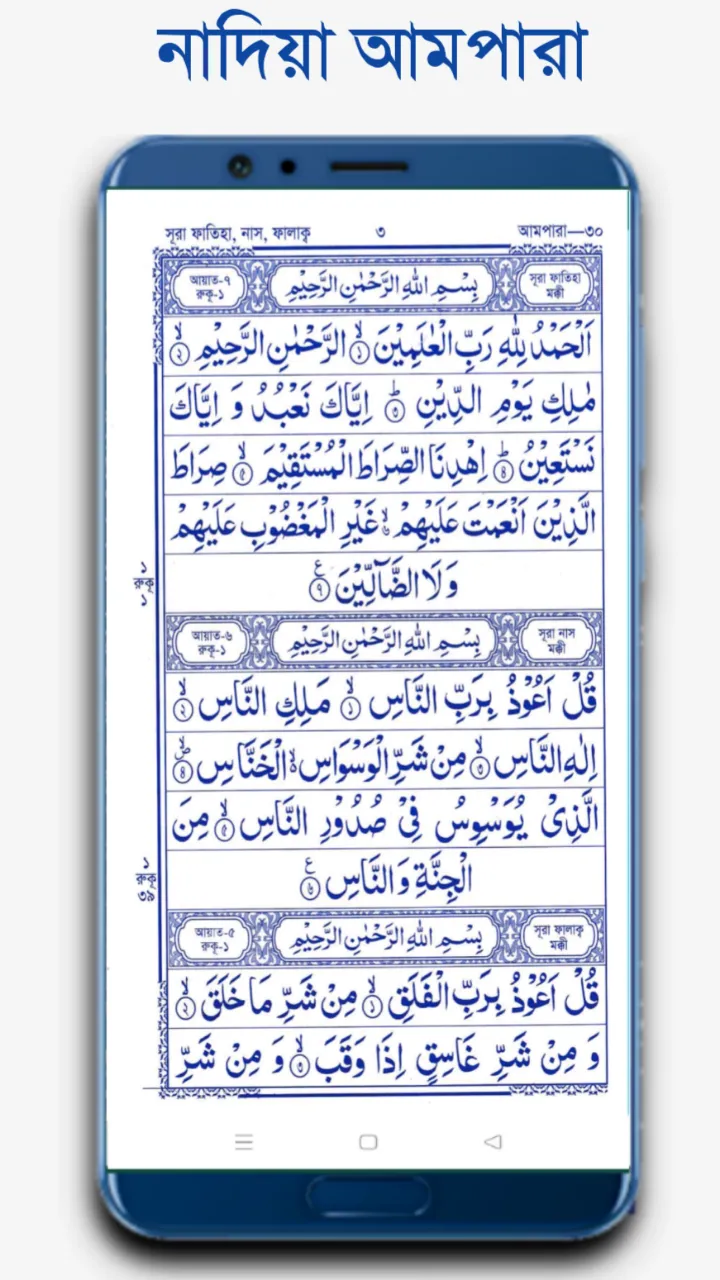 নাদিয়া আমপারা
সূরা ফাতিহা, নাস, ফালাক্ব ৩ আমপারা—৩০
সূরা ফাতিহা
মক্কী
بِسْمِ اللهِ الرَّحْمٰنِ الرَّحِيْمِ
আয়াত-৭
রুকূ-১
اَلْحَمْدُ لِلّٰهِ رَبِّ الْعٰلَمِيْنَ ۙ﴿১﴾ الرَّحْمٰنِ الرَّحِيْمِ ۙ﴿২﴾
مٰلِكِ يَوْمِ الدِّيْنِ ؕ﴿৩﴾ اِيَّاكَ نَعْبُدُ وَ اِيَّاكَ
نَسْتَعِيْنُ ؕ﴿৪﴾ اِهْدِنَا الصِّرَاطَ الْمُسْتَقِيْمَ ۙ﴿৫﴾ صِرَاطَ
الَّذِيْنَ اَنْعَمْتَ عَلَيْهِمْ ۙ۬ غَيْرِ الْمَغْضُوْبِ عَلَيْهِمْ
وَلَا الضَّآلِّيْنَ ﴿৭﴾ ع
১
রুকূ
১
সূরা নাস
মক্কী
بِسْمِ اللهِ الرَّحْمٰنِ الرَّحِيْمِ
আয়াত-৬
রুকূ-১
قُلْ اَعُوْذُ بِرَبِّ النَّاسِ ۙ﴿১﴾ مَلِكِ النَّاسِ ۙ﴿২﴾
اِلٰهِ النَّاسِ ۙ﴿৩﴾ مِنْ شَرِّ الْوَسْوَاسِ ۙ۬ الْخَنَّاسِ ۪ۙ﴿৪﴾
الَّذِىْ يُوَسْوِسُ فِىْ صُدُوْرِ النَّاسِ ۙ﴿৫﴾ مِنَ
الْجِنَّةِ وَ النَّاسِ ﴿৬﴾ ع
১
রুকূ
৩৯
সূরা ফালাক্ব
মক্কী
بِسْمِ اللهِ الرَّحْمٰنِ الرَّحِيْمِ
আয়াত-৫
রুকূ-১
قُلْ اَعُوْذُ بِرَبِّ الْفَلَقِ ۙ﴿১﴾ مِنْ شَرِّ مَا خَلَقَ ۙ﴿২﴾
وَ مِنْ شَرِّ غَاسِقٍ اِذَا وَقَبَ ۙ﴿৩﴾ وَ مِنْ شَرِّ